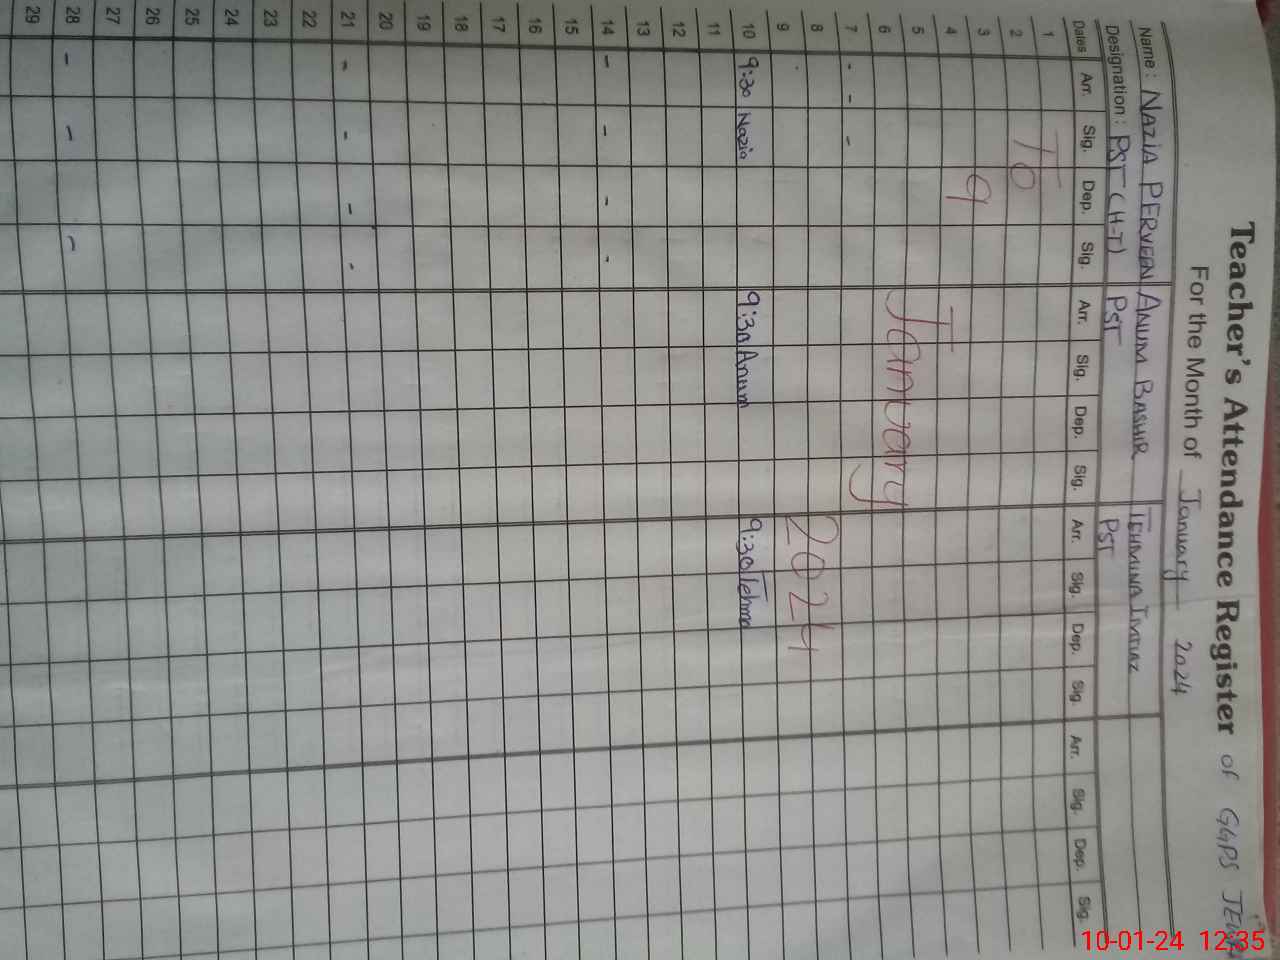 Teacher's Attendance Register of GGPS
For the Month of January 2024
Name : NAZIA PERVEEN ANUM BASHIR TEHMINA IMTIAZ
Designation : PST (H-T) PST PST
Dates Arr. Sig. Dep. Sig. Arr. Sig. Dep. Sig. Arr. Sig. Dep. Sig. Arr. Sig. Dep. Sig.
1
2 To
3
4 9
5
6 January
7 - - -
8
9 2024
10 9:30 Nazia 9:30 Anum 9:30 Tehmina
11
12
13
14 - - - -
15
16
17
18
19
20
21 - - - -
22
23
24
25
26
27
28 - - -
29
10-01-24 12:35